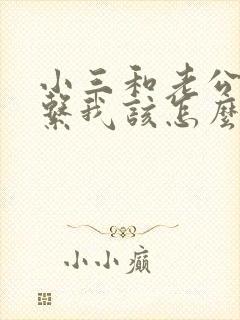 小三和老公
繫我該怎麼
小小癲